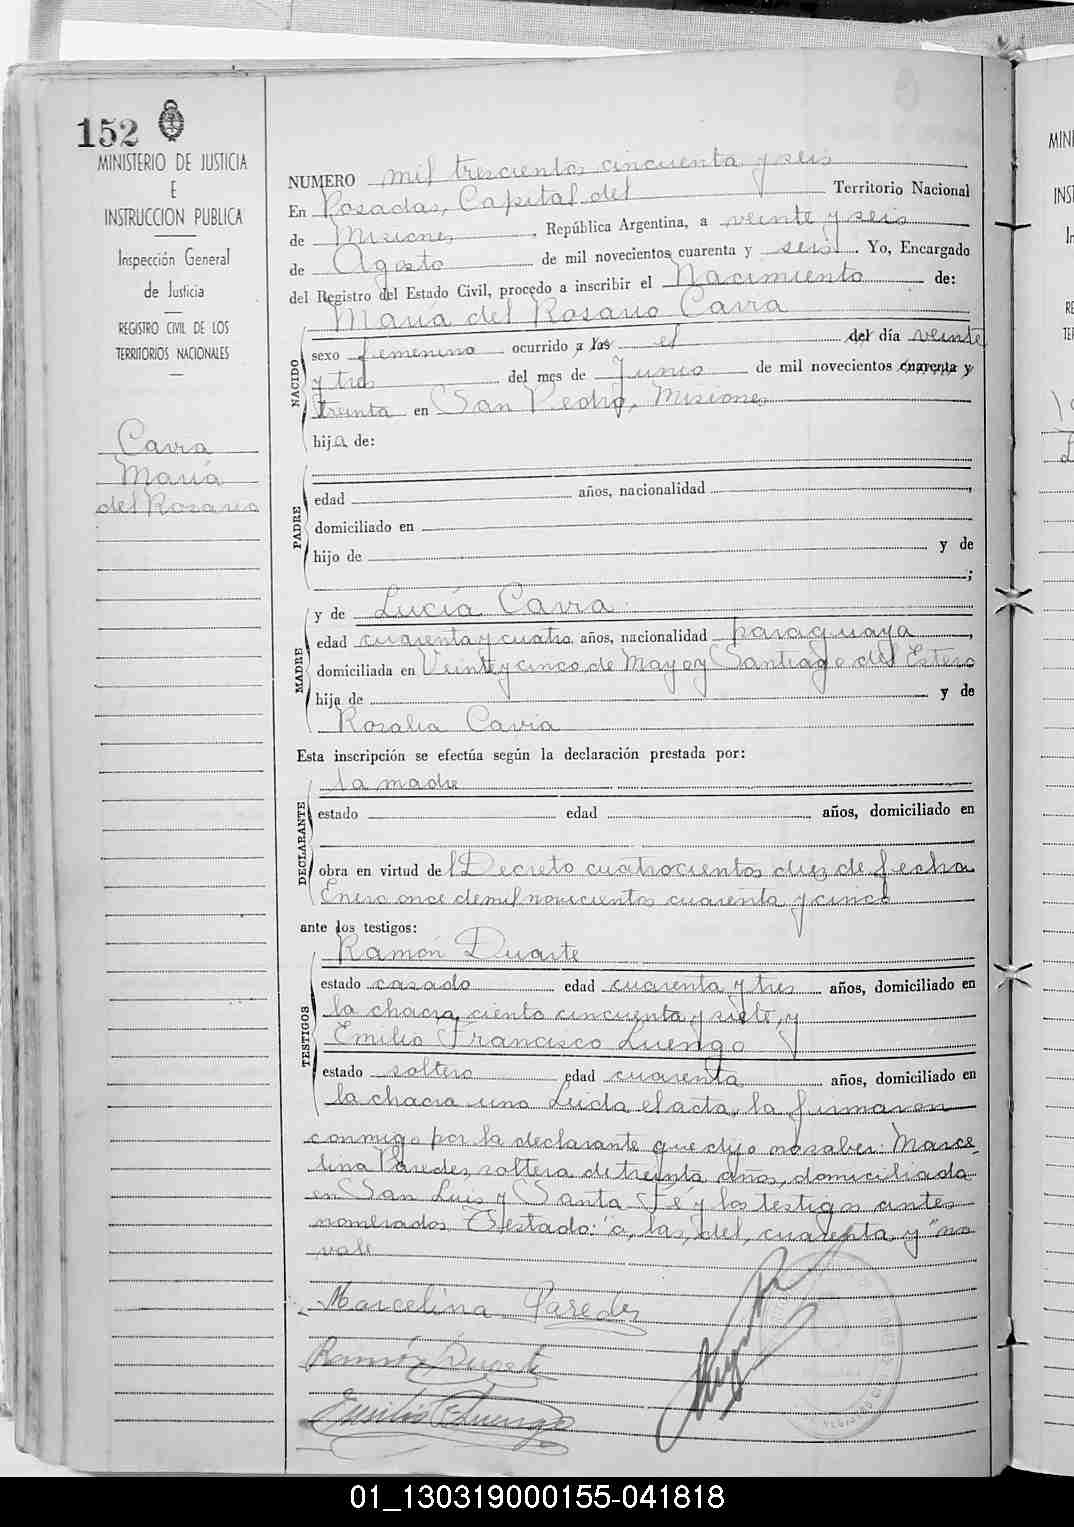 152
MINISTERIO DE JUSTICIA
E
INSTRUCCION PUBLICA
Inspección General
de Justicia
REGISTRO CIVIL DE LOS
TERRITORIOS NACIONALES
Cavia
María
del Rosario
NUMERO mil trescientos cincuenta y seis
En Posadas, Capital del Territorio Nacional
de Misiones, República Argentina, a veinte y seis
de Agosto de mil novecientos cuarenta y seis. Yo, Encargado
del Registro del Estado Civil, procedo a inscribir el Nacimiento de:
María del Rosario Cavia
NACIDO
sexo femenino ocurrido a las el del día veinte
y tres del mes de Junio de mil novecientos cuarenta y
treinta en San Pedro, Misiones
hija de:
PADRE
edad años, nacionalidad ,
domiciliado en
hijo de y de
;
MADRE
y de Lucía Cavia
edad cuarenta y cuatro años, nacionalidad paraguaya,
domiciliada en Veinte y cinco de Mayo y Santiago del Estero
hija de y de
Rosalia Cavia
Esta inscripción se efectúa según la declaración prestada por:
la madre
DECLARANTE
estado edad años, domiciliado en
obra en virtud del Decreto cuatrocientos diez de fecha
Enero once de mil novecientos cuarenta y cinco
ante los testigos:
Ramón Duarte
TESTIGOS
estado casado edad cuarenta y tres años, domiciliado en
la chacra ciento cincuenta y siete, y
Emilio Francisco Luengo
estado soltero edad cuarenta años, domiciliado en
la chacra uno Leida el acta, la firmaron
conmigo por la declarante que dijo no saber: Marce-
lina Paredes, soltera de treinta años, domiciliada
en San Luis y Santa Fé y los testigos antes
nombrados. Testado: "a, las, del, cuarenta y" no
vale
Marcelina Paredes
Ramón Duarte
Emilio F Luengo
01_130319000155-041818